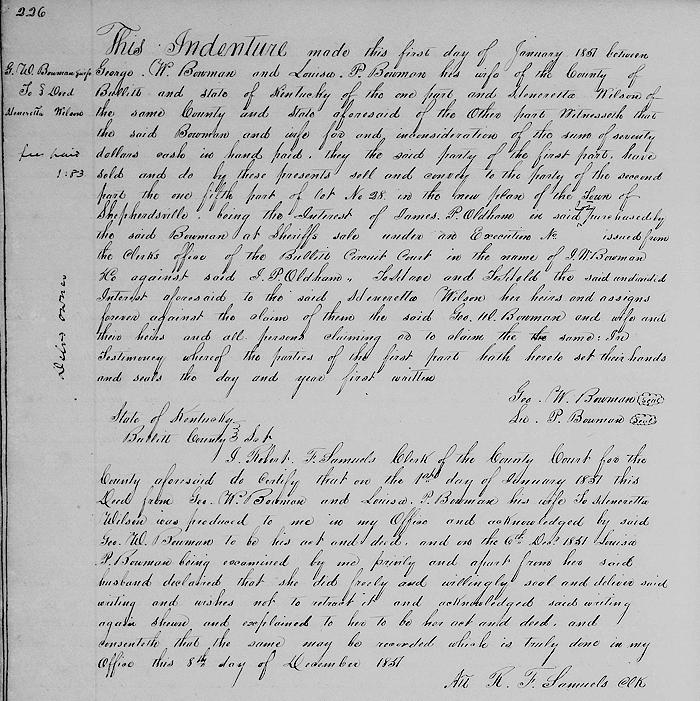 226
G. W. Bowman & wife
To } Deed
Heneretta Wilson
fee paid
1:83
Deliv'd owner
This Indenture made this first day of January 1851 between
George. W. Bowman and Louisa. P. Bowman his wife of the County of
Bullitt and State of Kentucky of the one part, and Heneretta Wilson of
the same County and State aforesaid of the Other part Witnesseth that
the said Bowman and wife for and, inconsideration of the sum of seventy
dollars cash in hand paid, they the said party of the first part, have
sold and do by these presents sell and convey to the party of the second
part the one fifth part of lot No 28. in the new plan of the Town of
Shepherdsville, being the Interest of James. P. Oldham in said purchased by
the said Bowman at Sheriffs sale under an Execution No. issued from
the Clerks office of the Bullitt Circuit Court in the name of J. W Bowman
&c against said J. P. Oldham, To Have and To Hold the said undivided
Interest aforesaid to the said Heneretta Wilson her heirs and assigns
forever against the claim of them the said Geo. W. Bowman and wife and
their heirs and all persons claiming or to claim the the same: In
Testimoney whereof the parties of the first part hath hereto set their hands
and seals the day and year first written
Geo. W. Bowman (seal)
Lu. P. Bowman (seal)
State of Kentucky
Bullitt County } Sct
I. Robert. F. Samuels Clerk of the County Court for the
County aforesaid do certify that on the 1st day of January 1851 this
Deed from Geo. W. Bowman and Louisa. P. Bowman his wife To Heneretta
Wilson was produced to me in my Office and acknowledged by said
Geo. W. Bowman to be his act and deed, and on the 6th Decr 1851 Louisa
P. Bowman being examined by me privily and apart from her said
husband declared that she did freely and willingly seal and deliver said
writing and wishes not to retract it and acknowledged said writing
again shewn and explained to her to be her act and deed, and
consenteth that the same may be recorded which is truly done in my
Office this 8th day of December 1851
Att R. F. Samuels Clk